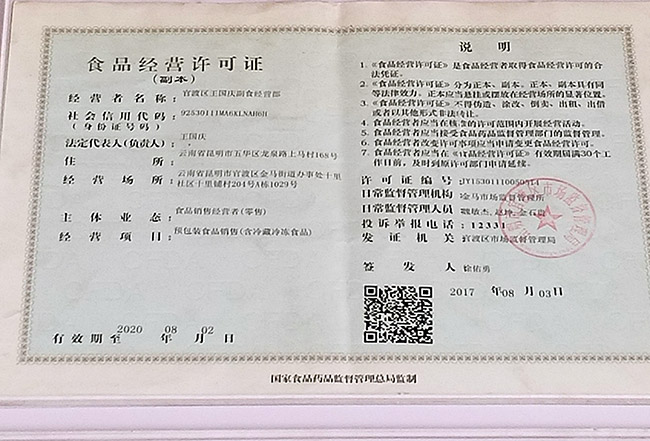 食品经营许可证
(副本)
经营者名称: 官渡区王国庆副食经营部
社会信用代码: 92530111MA6KLNAH6H
(身份证号码)
法定代表人(负责人): 王国庆
住所: 云南省昆明市五华区龙泉路上马村168号
经营场所: 云南省昆明市官渡区金马街道办事处十里
社区十里铺村204号A栋1029号
主体业态: 食品销售经营者(零售)
经营项目: 预包装食品销售(含冷藏冷冻食品)
有效期至 2020 年 08 月 02 日
说明
1.《食品经营许可证》是食品经营者取得食品经营许可的合
法凭证。
2.《食品经营许可证》分为正本、副本。正本、副本具有同
等法律效力。正本应当悬挂或摆放在经营场所的显著位置。
3.《食品经营许可证》不得伪造、涂改、倒卖、出租、出借
或者以其他形式非法转让。
4.食品经营者应当在核准的许可范围内开展经营活动。
5.食品经营者应当接受食品药品监督管理部门的监督管理。
6.食品经营者改变许可事项应当申请变更食品经营许可。
7.食品经营者应当在《食品经营许可证》有效期届满30个工
作日前,及时到原许可部门申请延续。
许可证编号: JY15301110050314
日常监督管理机构: 金马市场监督管理所
日常监督管理人员: 魏敏杰, 赵坤, 金石磊
投诉举报电话: 12331
发证机关: 官渡区市场监督管理局
签发人 徐佑勇
2017 年 08 月 03 日
国家食品药品监督管理总局监制